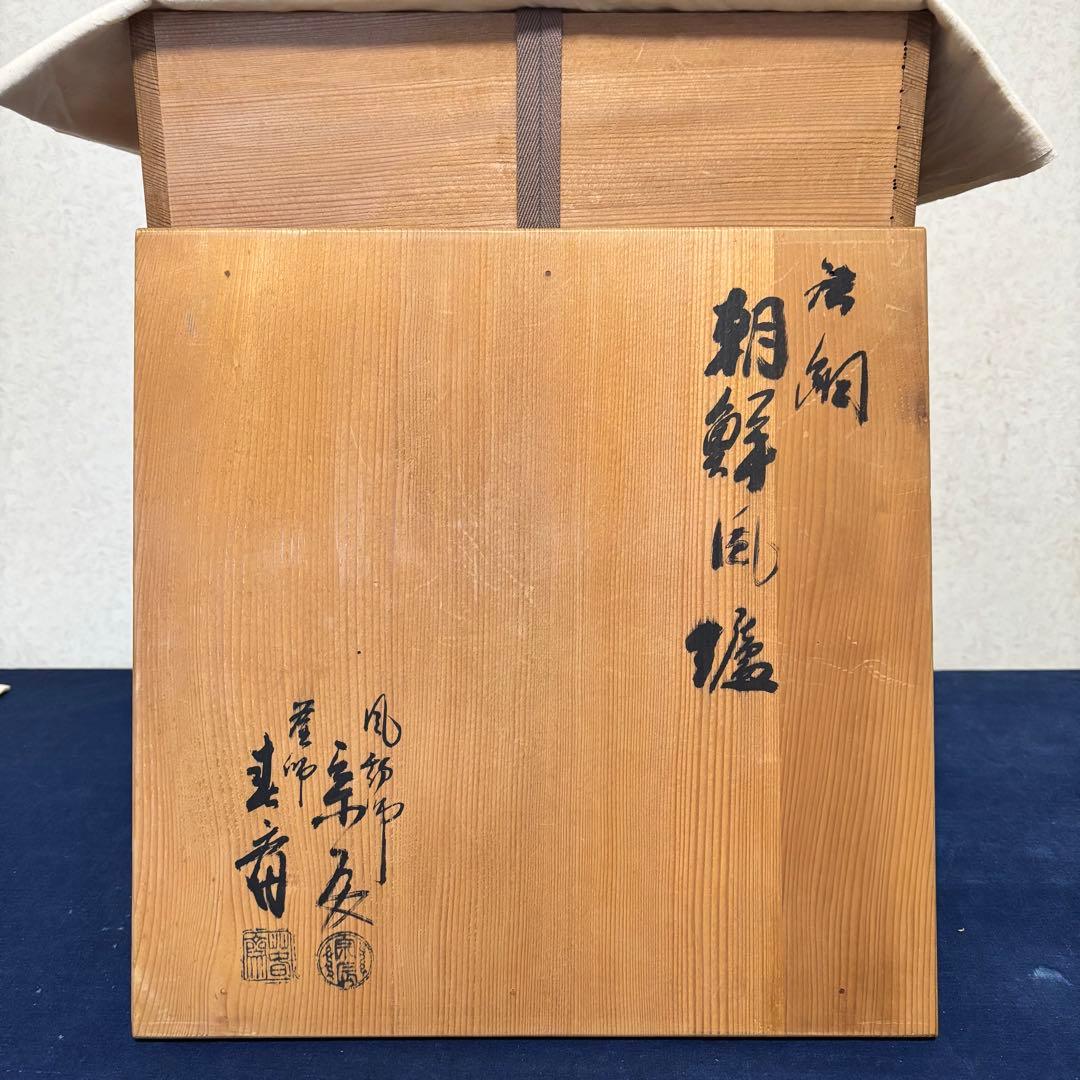 唐銅
朝鮮風爐
風炉師
宗友
釜師
春斎